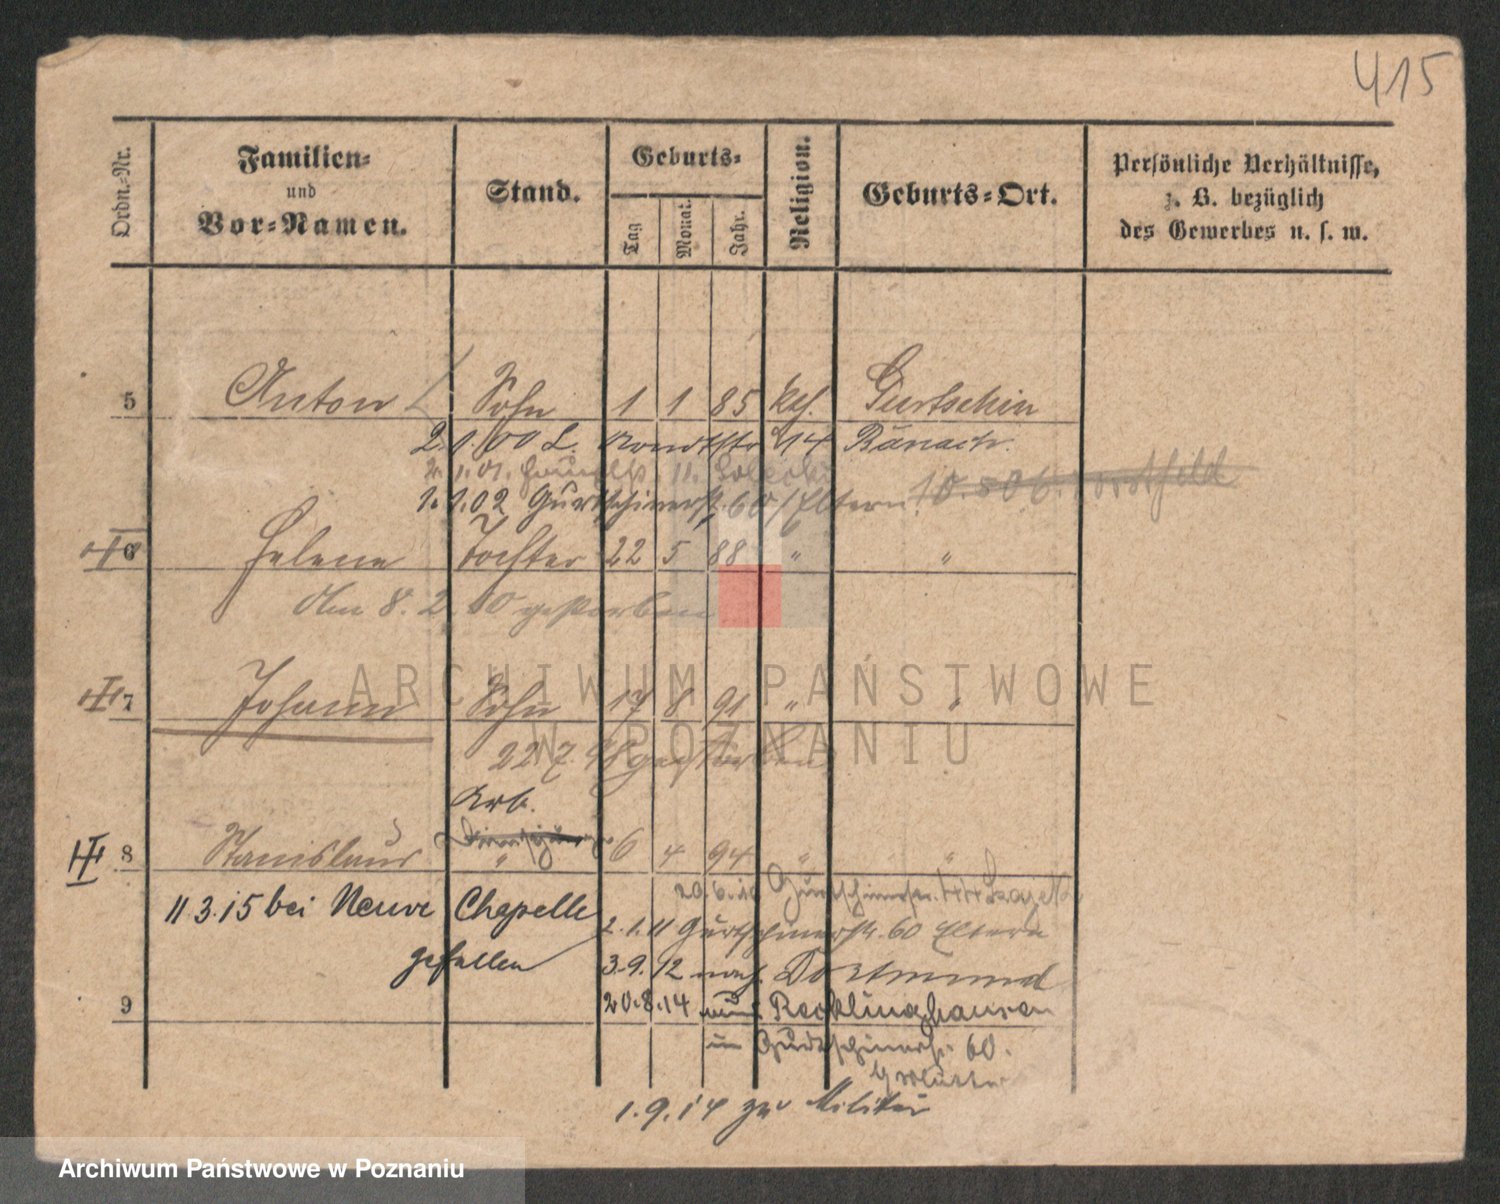 415
Ordn.-Nr.
Familien-
und
Vor-Namen.
Stand.
Geburts-
Tag
Monat.
Jahr.
Religion.
Geburts-Ort.
Persönliche Verhältnisse,
z. B. bezüglich
des Gewerbes u. s. w.
5 Anton Sohn 1 1 85 kth. Gurtschin
2.1.00 L. 14 Bänach.
2.1.01.
1.1.02 Gurtschinerstr. 60 / Eltern
6 Helene Tochter 22 5 88 " "
Am 8. 2. 10 gestorben
7 Johann Sohn 17 8 91 " "
22.7. gestorben
Arb.
8 Stanislaus " 6 4 94 " "
11 3.15 bei Neuve Chapelle
gefallen
20.6.10 Gurtschinerstr.
2.1.11 Gurtschinerstr. 60 Eltern
3.9.12 nach Dortmund
9
20.8.14 Recklinghausen
in Gurtschinerstr. 60.
1.9.14 zu Militär
ARCHIWUM PAŃSTWOWE
W POZNANIU
Archiwum Państwowe w Poznaniu